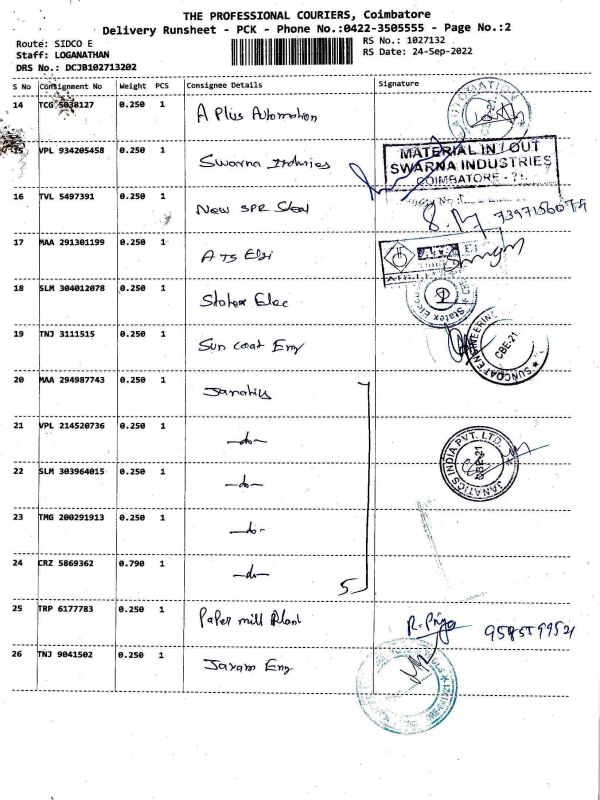 THE PROFESSIONAL COURIERS, Coimbatore
Delivery Runsheet - PCK - Phone No.:0422-3505555 - Page No.:2
Route: SIDCO E RS No.: 1027132
Staff: LOGANATHAN RS Date: 24-Sep-2022
DRS No.: DCJB102713202
S No Consignment No Weight PCS Consignee Details Signature
14 TCG 5038127 0.250 1 A Plus Automation
15 VPL 934205458 0.250 1 Swarna
MATERIAL IN / OUT
SWARNA INDUSTRIES
COIMBATORE - 21.
16 TVL 5497391 0.250 1 New SPR Steel
17 MAA 291301199 0.250 1 A TS Elgi
18 SLM 304012078 0.250 1 Statex Elec
Statex
19 TNJ 3111515 0.250 1 Sun Coat Eng
SUNCOAT ENGINEERING
CBE-21
20 MAA 294987743 0.250 1 Janatics
21 VPL 214520736 0.250 1 -do-
JANATICS INDIA PVT. LTD.
CBE-21
22 SLM 303964015 0.250 1 -do-
23 TMG 200291913 0.250 1 -do-
24 CRZ 5869362 0.790 1 -do-
5
25 TRP 6177783 0.250 1 Paper mill Plant R. Priya
26 TNJ 9041502 0.250 1 Jayam Eng